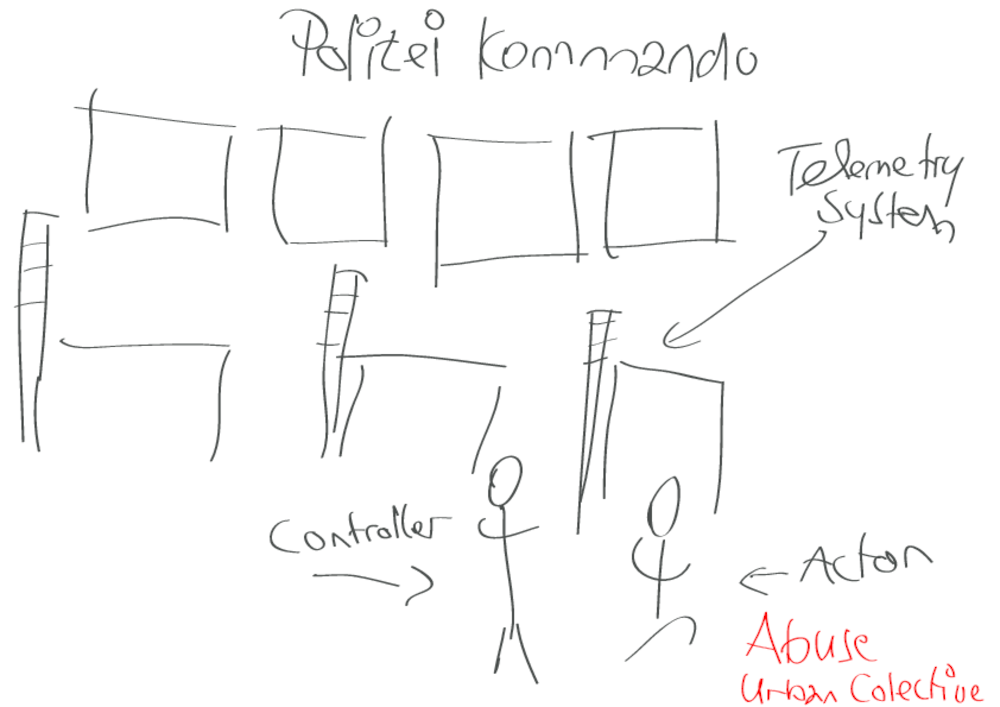 Politei Kommando
Telemetry
System
Controller
Acton
Abuse
Urban Colective